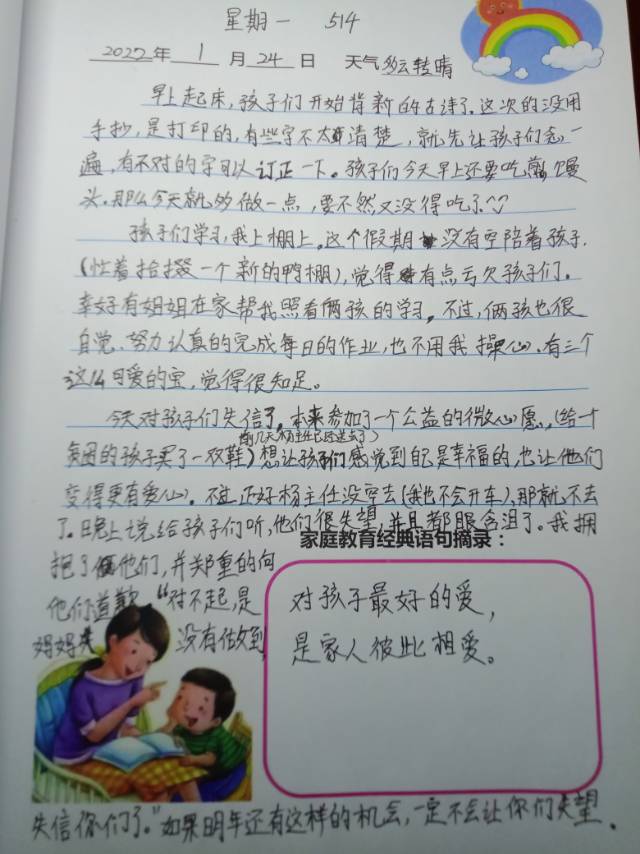 星期一 514
2022年 1 月 24 日 天气 多云转晴
早上起床,孩子们开始背新的古诗了。这次的没用
手抄,是打印的,有些字不太清楚,就先让孩子们念一
遍,有不对的字可以订正一下。孩子们今天早上还要吃煎馒
头。那么今天就少做一点,要不然又没得吃了
孩子们学习,我上棚上。这个假期没有空陪着孩子.
(忙着拾掇一个新的鸭棚),觉得有点亏欠孩子们。
幸好有姐姐在家帮我照看俩孩的学习。不过,俩孩也很
自觉、努力认真的完成每日的作业,也不用我操心.有三个
这么可爱的宝,觉得很知足。
今天对孩子们失信了。本来参加了一个公益的微心愿,(给一个
前几天杨主任已送去了)
贫困的孩子买了一双鞋)想让孩子们感觉到自己是幸福的,也让他们
变得更有爱心。不过正好杨主任没空去(我也不会开车)、那就不去
了。晚上说给孩子们听,他们很失望,并且都眼含泪了。我拥
家庭教育经典语句摘录:
抱了他们,并郑重的向
他们道歉“对不起,是
妈妈 没有做到,
对孩子最好的爱,
是家人彼此相爱。
失信你们了。”如果明年还有这样的机会,一定不会让你们失望.